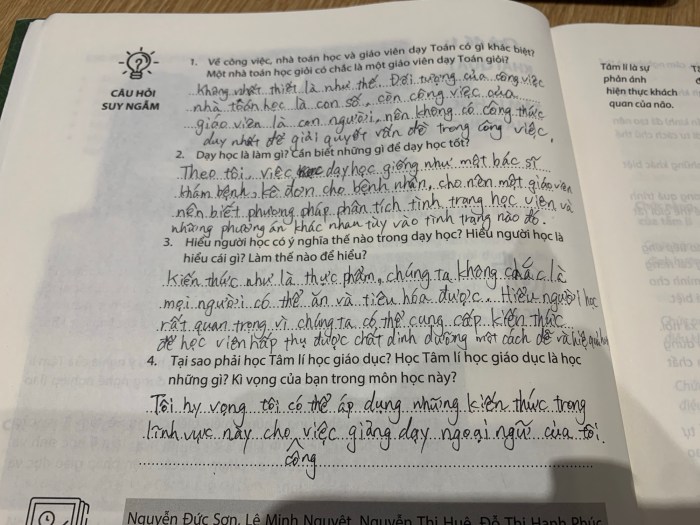 1. Về công việc, nhà toán học và giáo viên dạy Toán có gì khác biệt?
Một nhà toán học giỏi có chắc là một giáo viên dạy Toán giỏi?
Không nhất thiết là như thế. Đối tượng của công việc
nhà toán học là con số, còn công việc của
giáo viên là con người, nên không có công thức
duy nhất để giải quyết vấn đề trong công việc.
CÂU HỎI
SUY NGẪM
2. Dạy học là làm gì? Cần biết những gì để dạy học tốt?
Theo tôi, việc dạy học giống như một bác sĩ
khám bệnh, kê đơn cho bệnh nhân, cho nên một giáo viên
nên biết phương pháp phân tích tình trạng học viên và
những phương án khác nhau tùy vào tình trạng nào đó.
3. Hiểu người học có ý nghĩa thế nào trong dạy học? Hiểu người học là
hiểu cái gì? Làm thế nào để hiểu?
Kiến thức như là thực phẩm, chúng ta không chắc là
mọi người có thể ăn và tiêu hóa được. Hiểu người học
rất quan trọng vì chúng ta có thể cung cấp kiến thức
để học viên hấp thụ được chất dinh dưỡng một cách dễ và hiệu quả
4. Tại sao phải học Tâm lí học giáo dục? Học Tâm lí học giáo dục là học
những gì? Kì vọng của bạn trong môn học này?
Tôi hy vọng tôi có thể áp dụng những kiến thức trong
lĩnh vực này cho việc giảng dạy ngoại ngữ của tôi.
công
Nguyễn Đức Sơn, Lê Minh Nguyệt, Nguyễn Thị Huệ, Đỗ Thị Hạnh Phúc
Tâm lí là sự
phản ánh
hiện thực khách
quan của não.